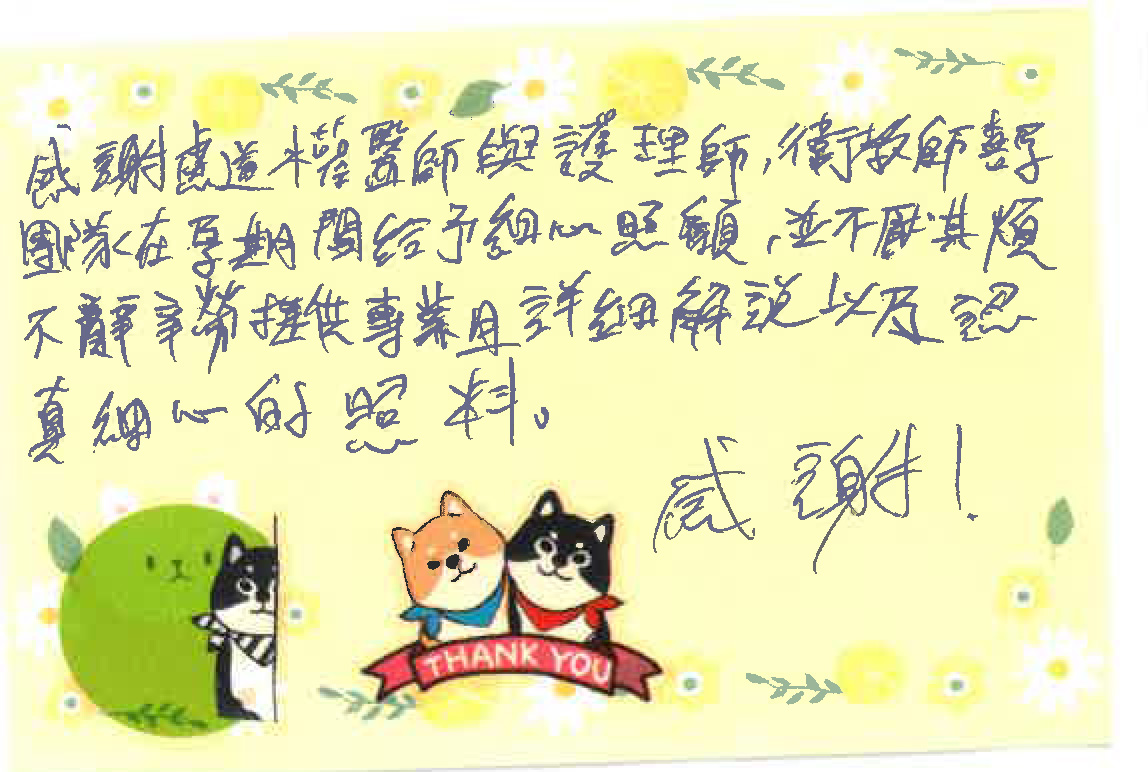 感謝盧道權醫師與護理師,衛教師等
團隊在孕期間給予細心照顧,並不厭其煩
不辭辛勞提供專業且詳細解說以及認
真細心的照料。
感謝!
THANK YOU